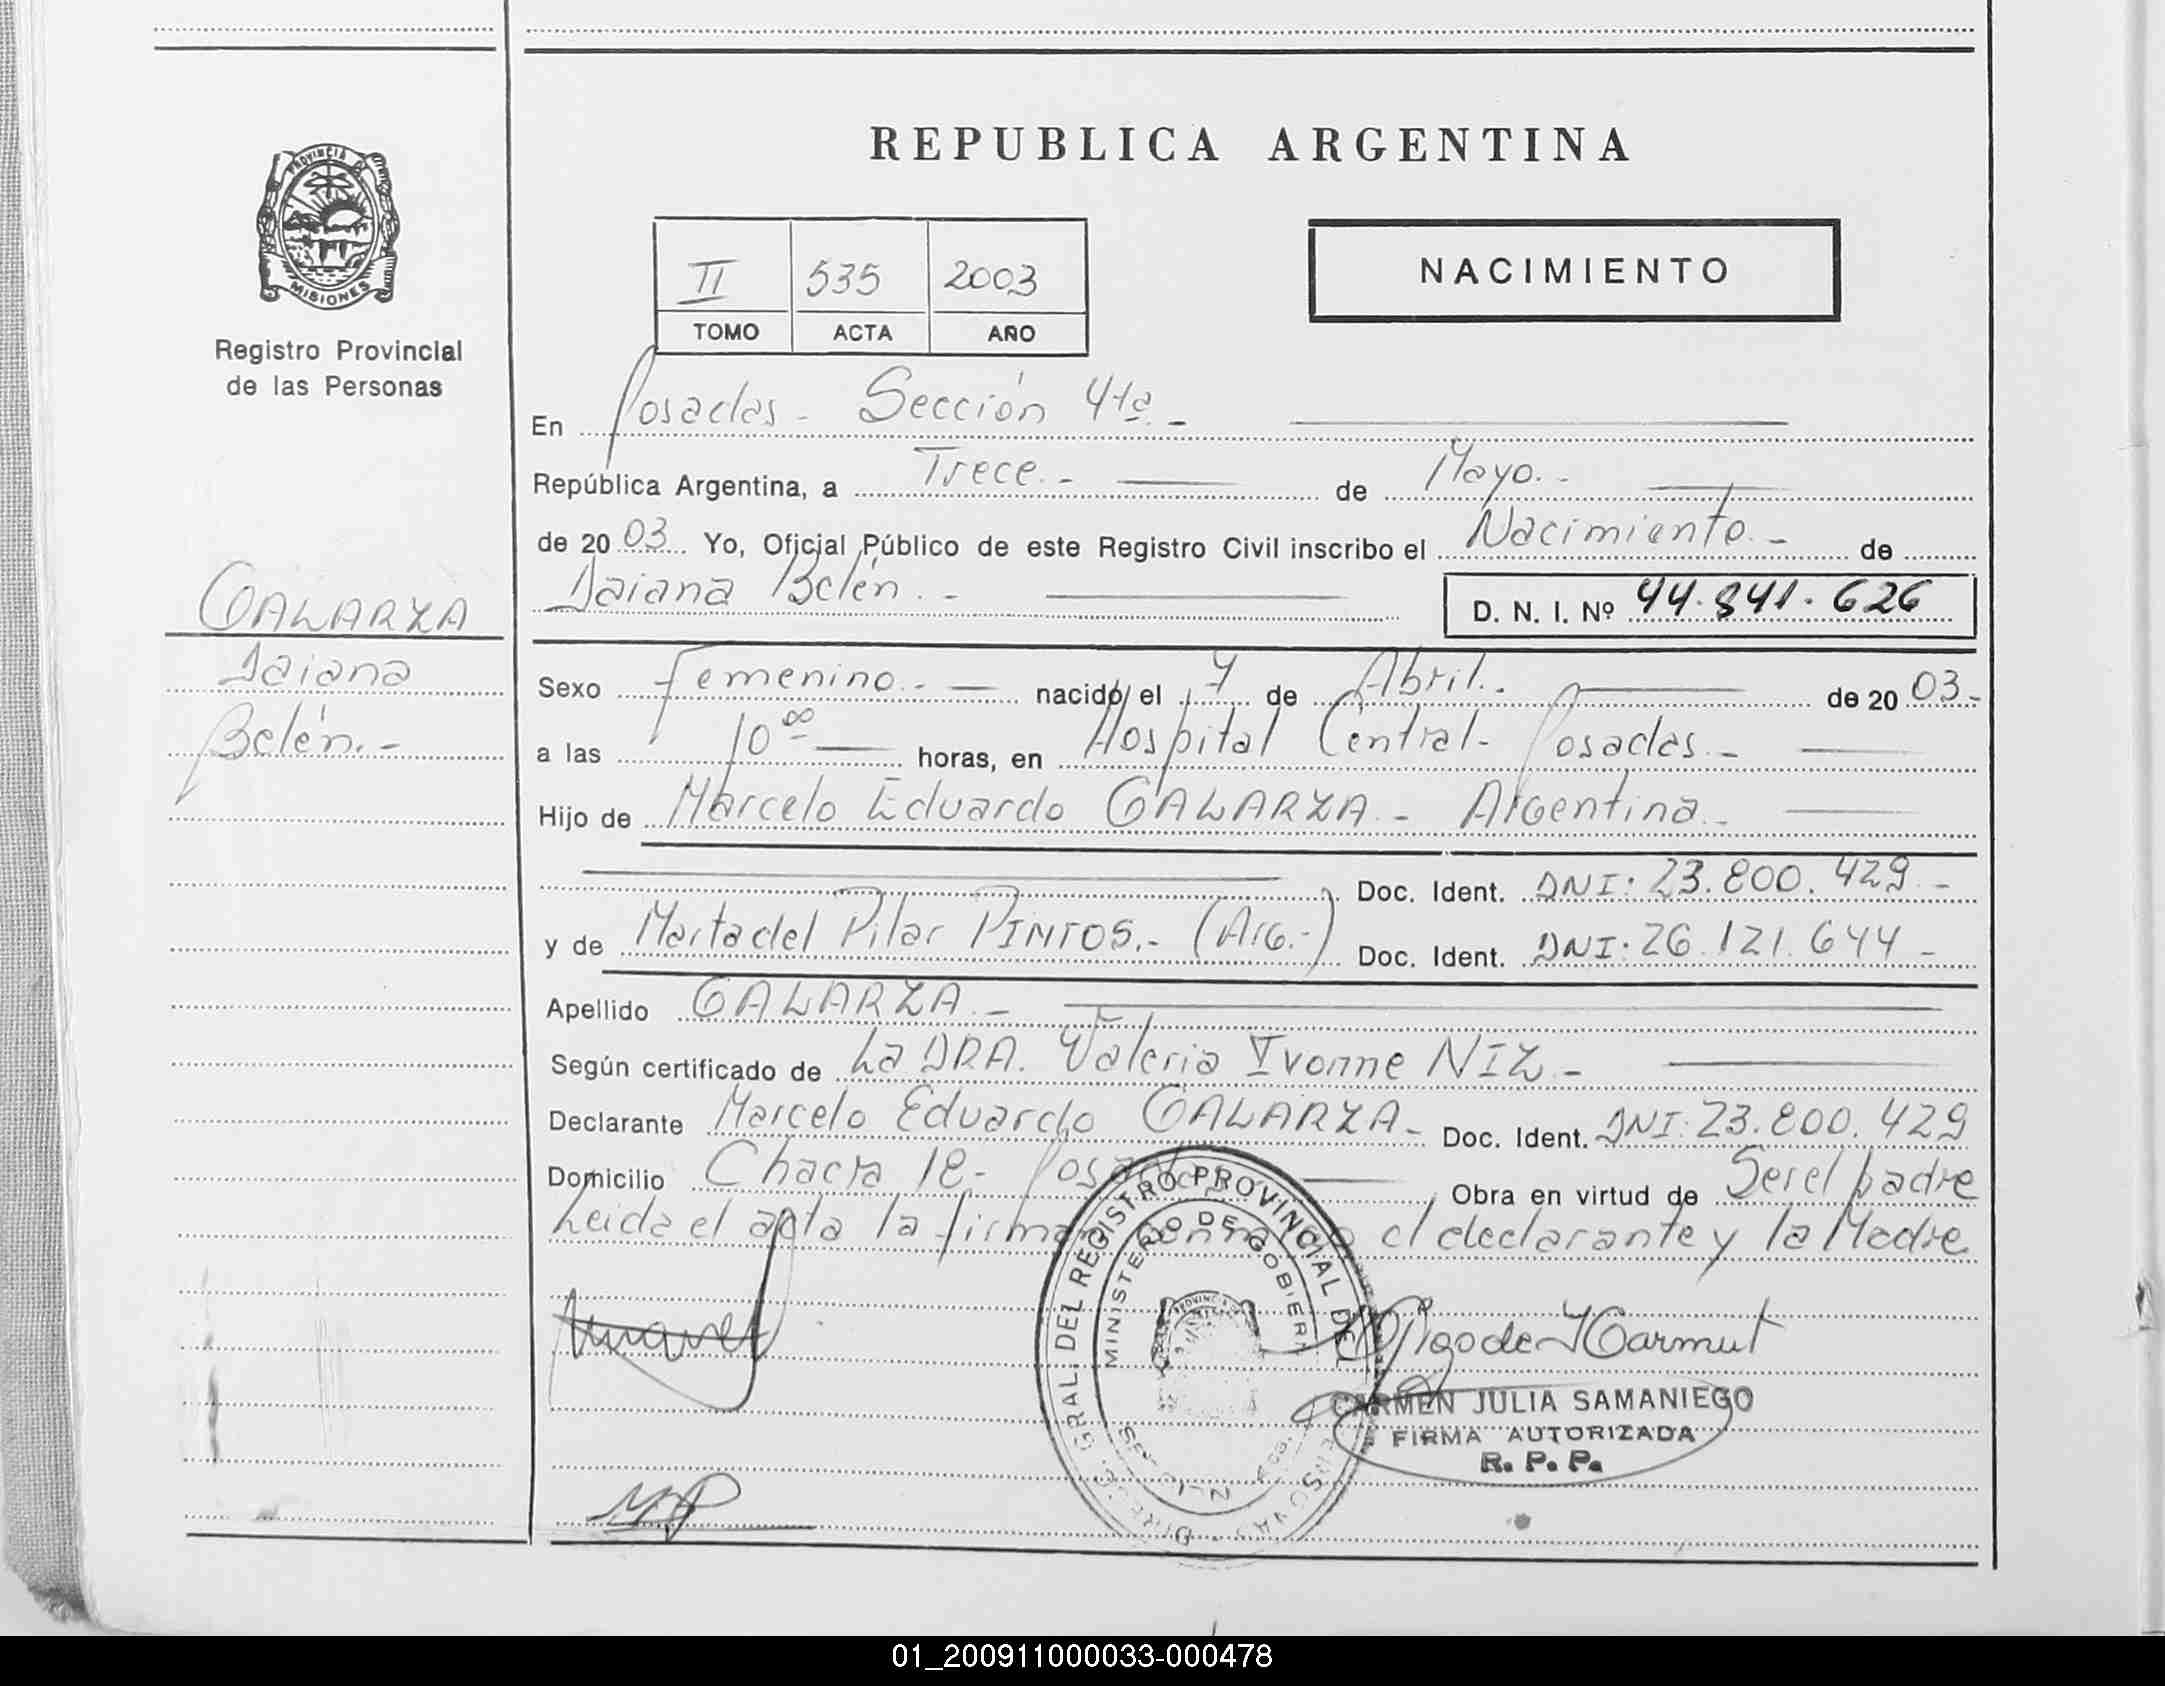 REPUBLICA ARGENTINA
PROVINCIA DE
MISIONES
Registro Provincial
de las Personas
II 535 2003
TOMO ACTA AÑO
NACIMIENTO
En Posadas - Sección 4ta. -
República Argentina, a Trece. - de Mayo. -
de 20 03 Yo, Oficial Público de este Registro Civil inscribo el Nacimiento. - de
Daiana Belén. - D. N. I. Nº 44.841.626
GALARZA
Daiana
Belén. -
Sexo Femenino. - nacido el de Abril. de 20 03.-
a las 10 ºº horas, en Hospital Central - Posadas. -
Hijo de Marcelo Eduardo GALARZA. - Argentina. -
Doc. Ident. DNI: 23.800.429. -
y de Marta del Pilar PINTOS. - (Arg. -) Doc. Ident. DNI: 26.121.644 -
Apellido GALARZA. -
Según certificado de La DRA. Valeria Ivonne NIZ. -
Declarante Marcelo Eduardo GALARZA - Doc. Ident. DNI: 23.800.429
Domicilio Chacra 18 - Posadas Obra en virtud de Ser el padre
Leida el acta la firma el declarante y la Madre
GRAL. DEL REGISTRO PROVINCIAL DE
MINISTERIO DE GOBIERN
CARMEN JULIA SAMANIEGO
FIRMA AUTORIZADA
R. P. P.
01_200911000033-000478